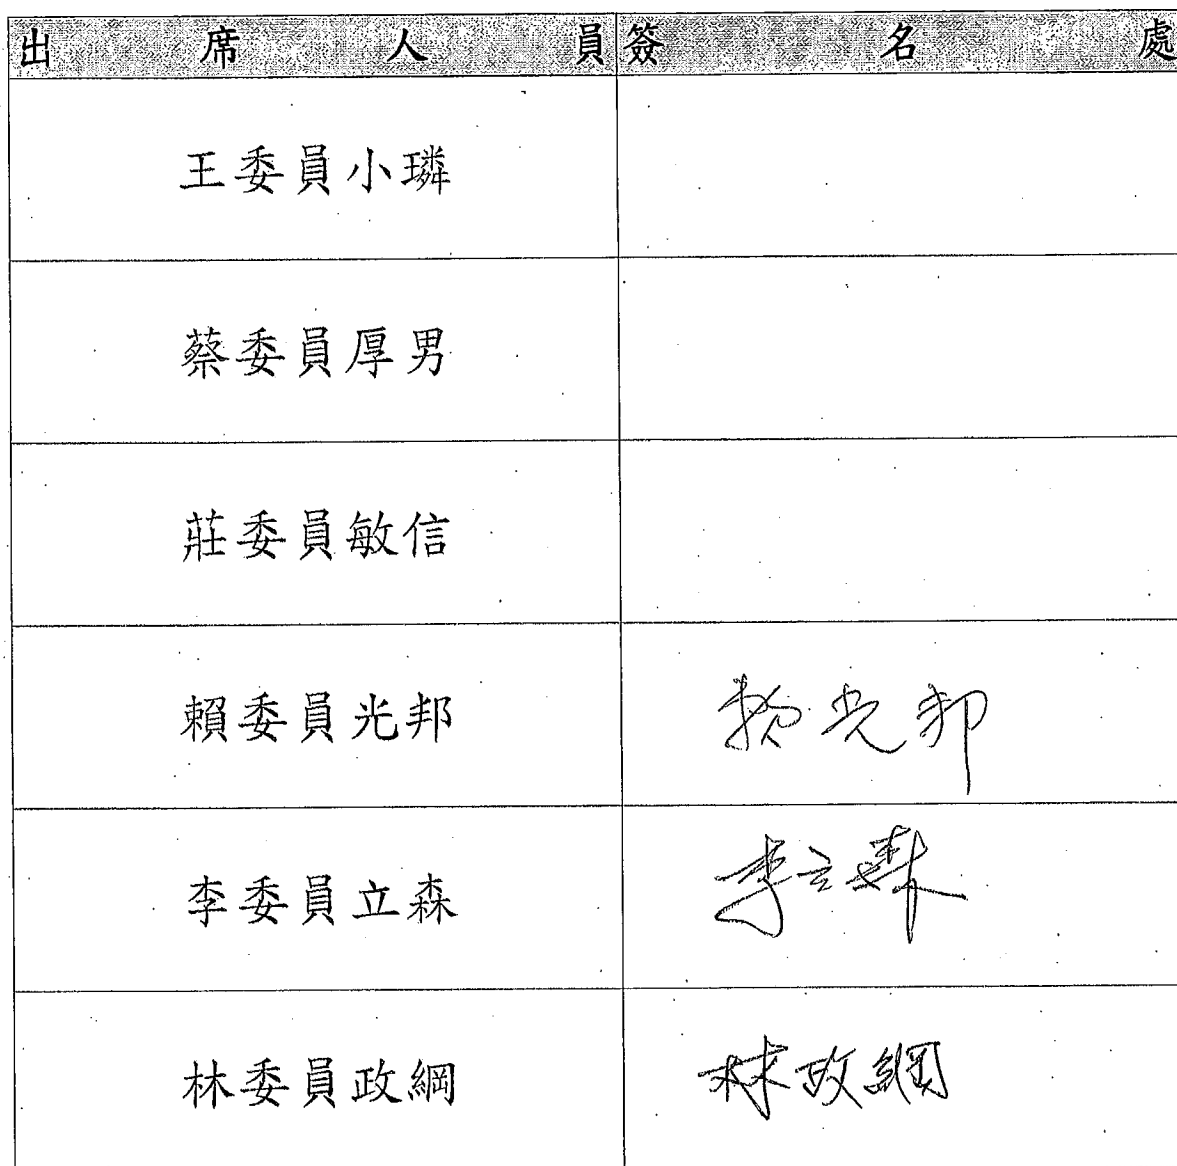 出席人員 簽名處
王委員小璘
蔡委員厚男
莊委員敏信
賴委員光邦 賴光邦
李委員立森 李立森
林委員政綱 林政綱